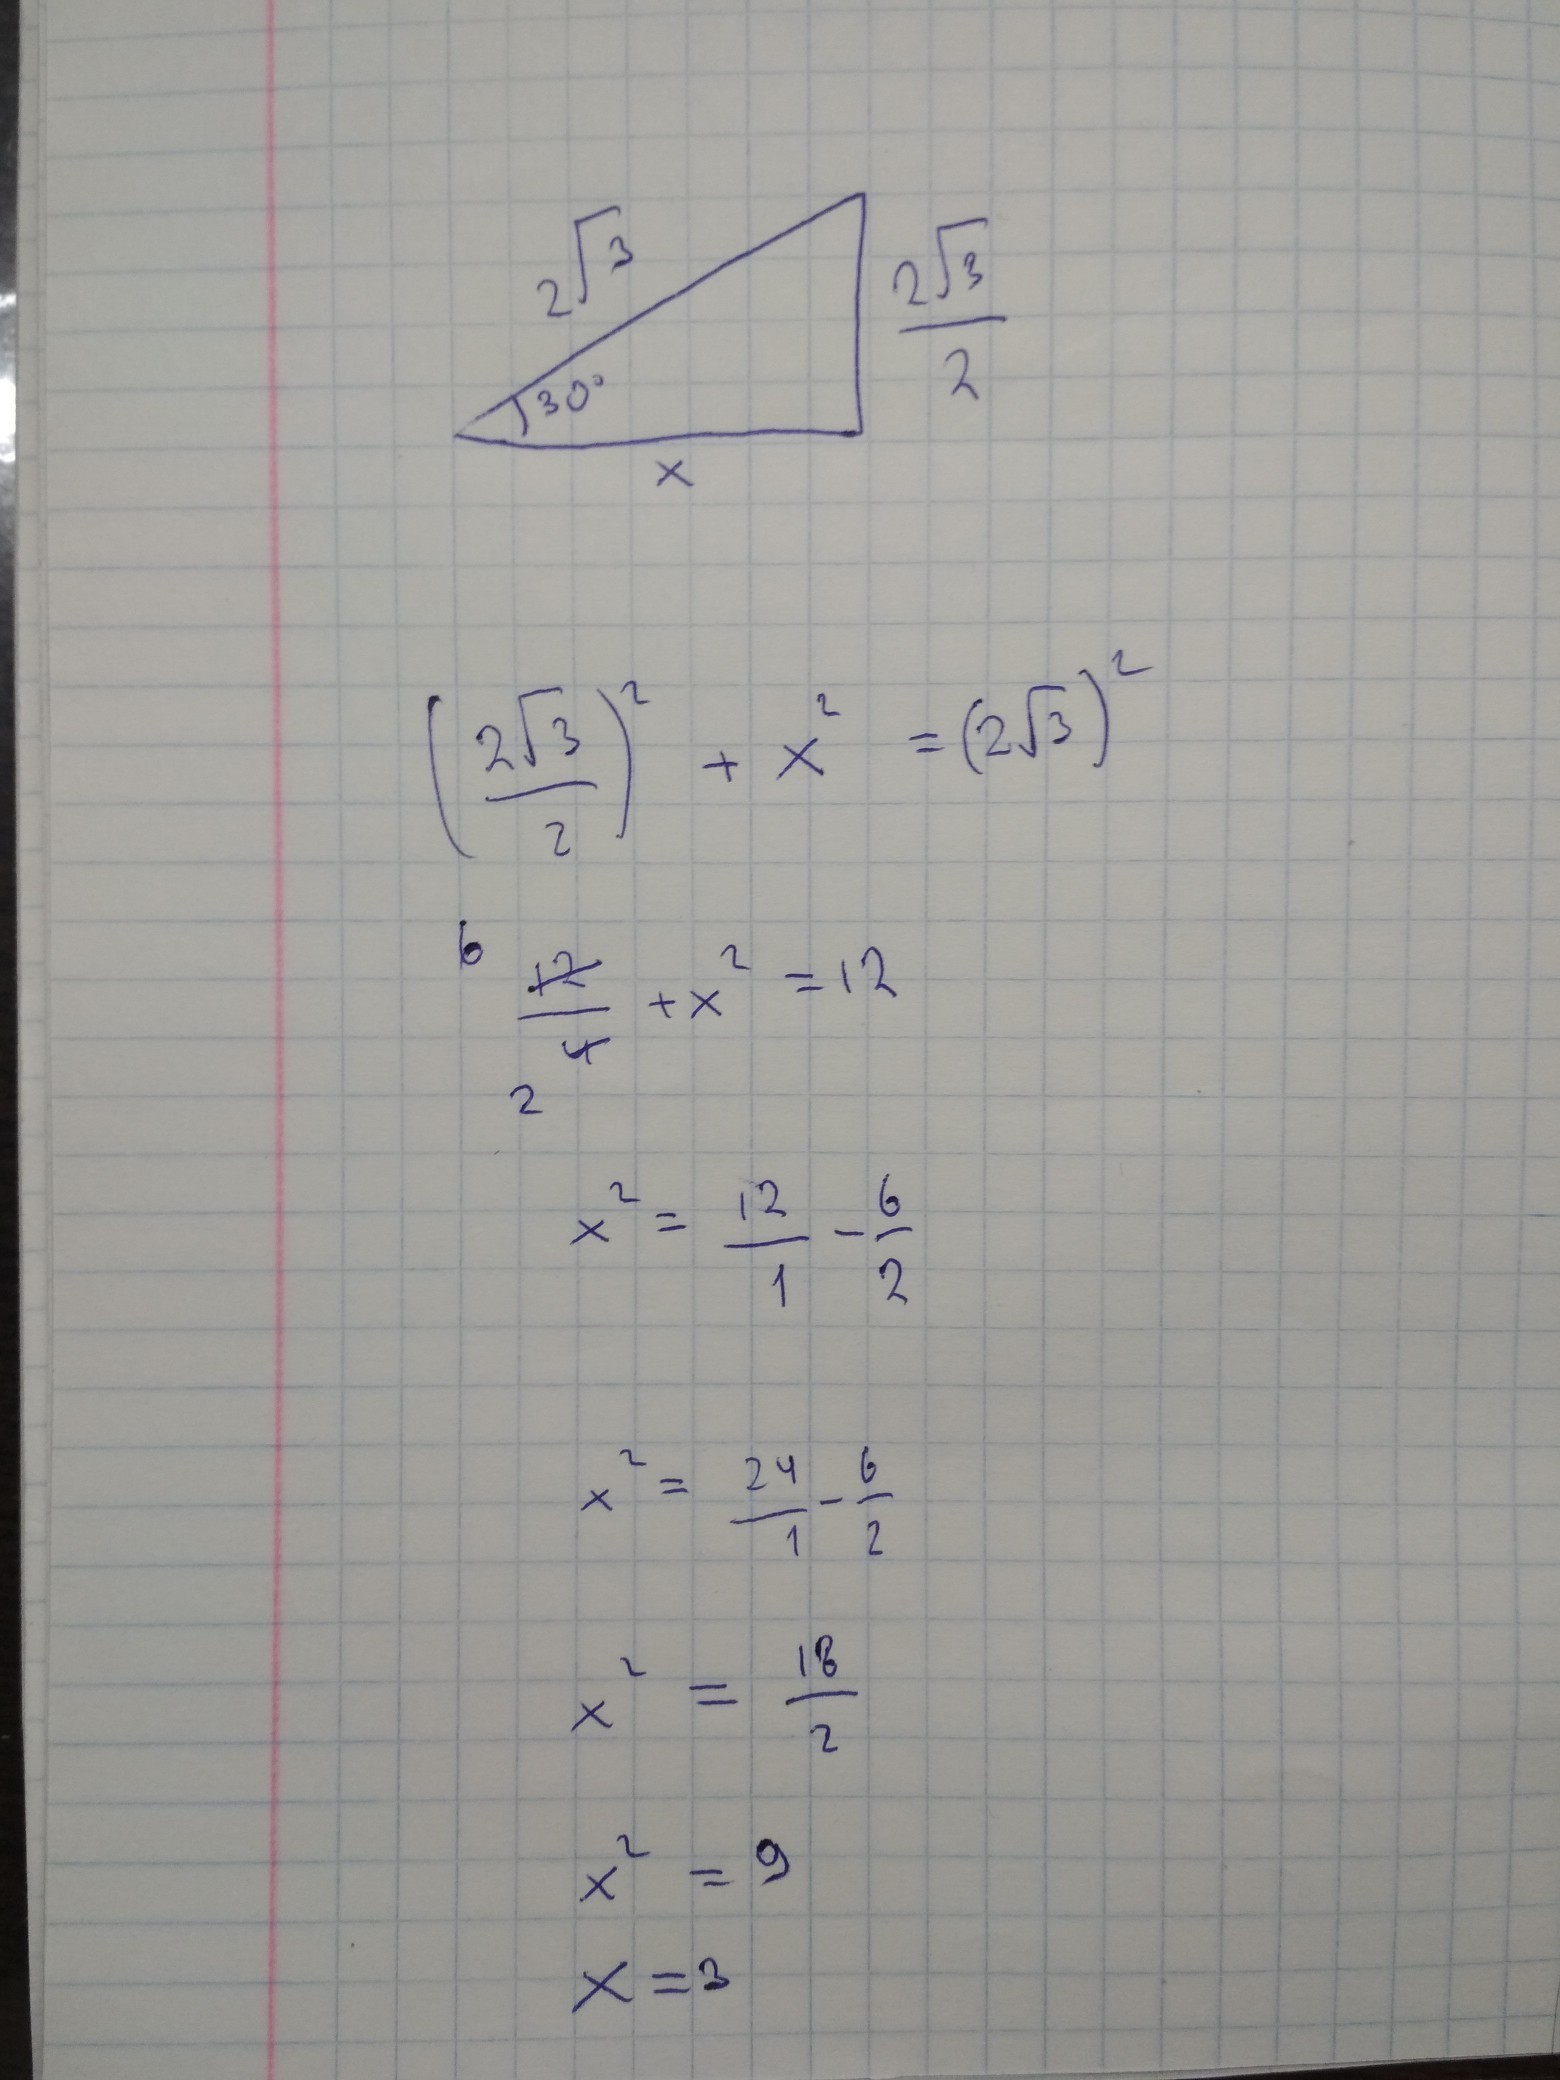 2√3
2√3/2
30°
x
(2√3/2)² + x² = (2√3)²
6 12/4 + x² = 12
2
x² = 12/1 - 6/2
x² = 24/1 - 6/2
x² = 18/2
x² = 9
x = 3